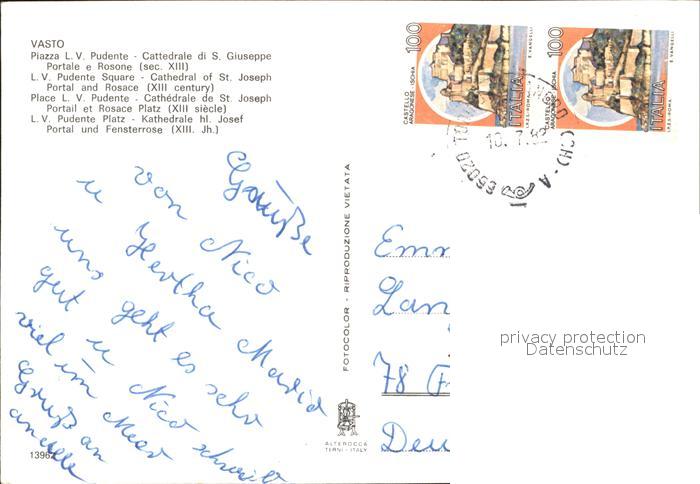 VASTO
Piazza L. V. Pudente - Cattedrale di S. Giuseppe
Portale e Rosone (sec. XIII)
L. V. Pudente Square - Cathedral of St. Joseph
Portal and Rosace (XIII century)
Place L. V. Pudente - Cathédrale de St. Joseph
Portail et Rosace Platz (XIII siècle)
L. V. Pudente Platz - Kathedrale hl. Josef
Portal und Fensterrose (XIII. Jh.)
100
CASTELLO
ARAGONESE ISCHIA
ITALIA
I.P.Z.S. ROMA
E. VANGELLI
100
CASTELLO
ARAGONESE ISCHIA
ITALIA
I.P.Z.S. ROMA
E. VANGELLI
66020
(CH) - A
10.7.8
Grüße
von Nico
u Hertha Maria
uns geht es sehr
gut u Nico schreit
viel im Meer
Gruß an
an alle
FOTOCOLOR - RIPRODUZIONE VIETATA
ALTEROCCA
TERNI - ITALY
Emm
Lan
78 (F
Deu
privacy protection
Datenschutz
1396